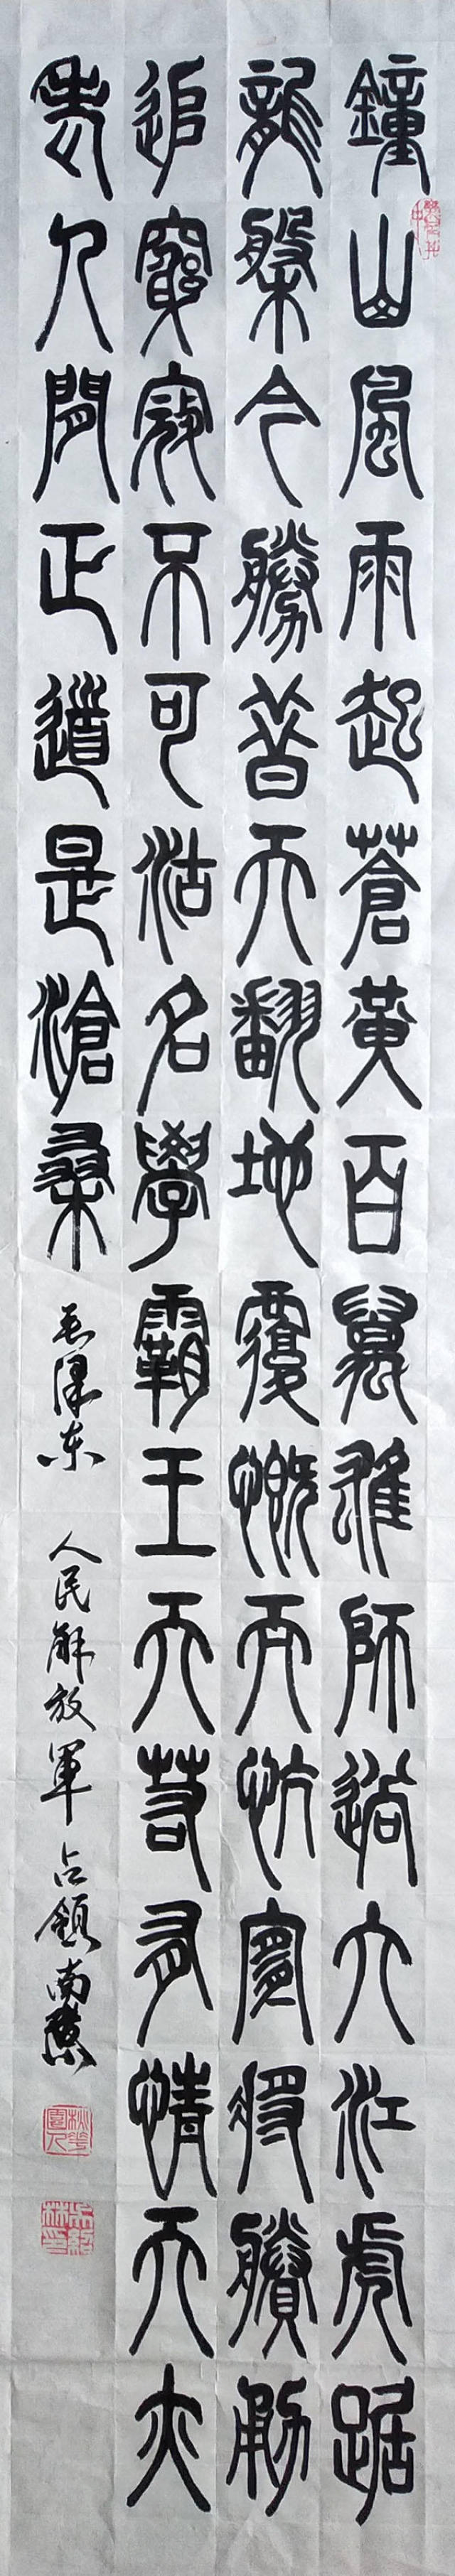 鐘山風雨起蒼黃百萬雄師過大江虎踞
龍槃今勝昔天翻地覆慨而忼宜將賸勇
追窮寇不可沽名學霸王天若有情天亦
老人間正道是滄桑 毛澤东 人民解放軍占領南京